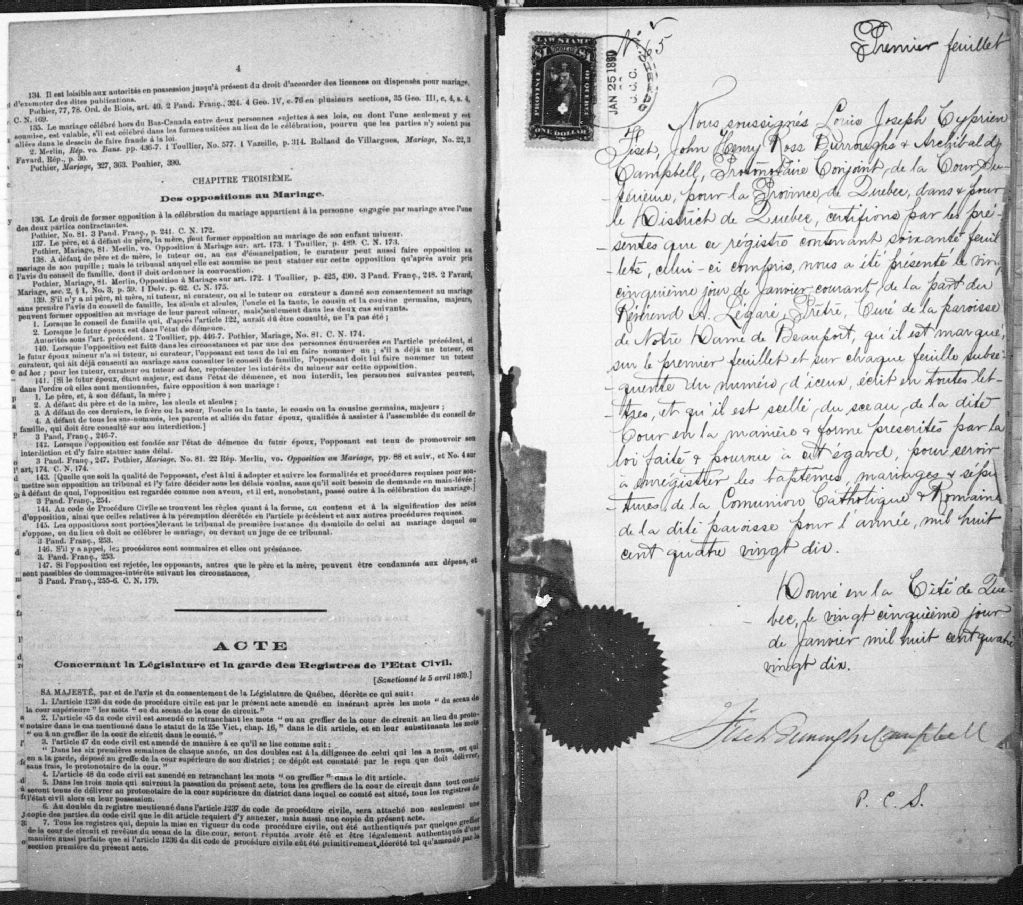 4
134. Il est loisible aux autorités en possession jusqu'à présent du droit d'accorder des licences ou dispenses pour mariage,
d'exempter des dites publications.
Pothier, 77, 78. Ord. de Blois, art. 40. 2 Pand. Franç., 324. 4 Geo. IV, c. 76 en plusieurs sections, 35 Geo. III, c. 4, s. 4,
C. N. 169.
135. Le mariage célébré hors du Bas-Canada entre deux personnes sujettes à ses lois, ou dont l'une seulement y est
soumise, est valable, s'il est célébré dans les formes usitées au lieu de la célébration, pourvu que les parties n'y soient pas
allées dans le dessein de faire fraude à la loi.
2 Merlin, Rép. vo. Bans. pp. 436-7. 1 Toullier, No. 577. 1 Vazeille, p. 314. Rolland de Villargues, Mariage, No. 22, 3
Favard, Rép., p. 30.
Pothier, Mariage, 327, 363. Pothier, 390.
CHAPITRE TROISIÈME.
Des oppositions au Mariage.
136. Le droit de former opposition à la célébration du mariage appartient à la personne engagée par mariage avec l'une
des deux parties contractantes.
Pothier, No. 81. 3 Pand. Franç., p. 241. C. N. 172.
137. Le père, et à défaut du père, la mère, peut former opposition au mariage de son enfant mineur.
Pothier, Mariage, 81. Merlin, vo. Opposition à Mariage sur. art. 173. 1 Toullier, p. 489. C. N. 173.
138. A défaut de père et de mère, le tuteur ou, au cas d'émancipation, le curateur peut aussi faire opposition au
mariage de son pupille; mais le tribunal auquel elle est soumise ne peut statuer sur cette opposition qu'après avoir pris
l'avis du conseil de famille, dont il doit ordonner la convocation.
Pothier, Mariage, 81. Merlin, Opposition à Mariage sur art. 172. 1 Toullier, p. 425, 490. 3 Pand. Franç., 248. 2 Favard,
Mariage, sec. 2, § 1, No. 3, p. 59. 1 Delv. p. 62. C. N. 175.
139. S'il n'y a ni père, ni mère, ni tuteur, ni curateur, ou si le tuteur ou curateur a donné son consentement au mariage
sans prendre l'avis du conseil de famille, les aïeuls et aïeules, l'oncle et la tante, le cousin et la cousine germains, majeurs,
peuvent former opposition au mariage de leur parent mineur, mais seulement dans les deux cas suivants.
1. Lorsque le conseil de famille qui, d'après l'article 122, aurait dû être consulté, ne l'a pas été;
2. Lorsque le futur époux est dans l'état de démence.
Autorités sous l'art. précédent. 2 Toullier, pp. 446-7. Pothier, Mariage, No. 81. C. N. 174.
140. Lorsque l'opposition est faite dans les circonstances et par une des personnes énumérées en l'article précédent, si
le futur époux mineur n'a ni tuteur, ni curateur, l'opposant est tenu de lui en faire nommer un; s'il a déjà un tuteur, ou
curateur, qui ait déjà consenti au mariage sans consulter le conseil de famille, l'opposant doit lui faire nommer un tuteur
ad hoc; pour les tuteur, curateur ou tuteur ad hoc, représenter les intérêts du mineur sur cette opposition.
141. [Si le futur époux, étant majeur, est dans l'état de démence, et non interdit, les personnes suivantes peuvent,
dans l'ordre où elles sont mentionnées, faire opposition à son mariage:
1. Le père, et, à son défaut, la mère;
2. A défaut du père et de la mère, les aïeuls et aïeules;
3. A défaut de ces derniers, le frère ou la sœur, l'oncle ou la tante, le cousin ou la cousine germains, majeurs;
4. A défaut de tous les sus-nommés, les parents et alliés du futur époux, qualifiés à assister à l'assemblée du conseil de
famille, qui doit être consulté sur son interdiction.]
3 Pand. Franç., 246-7.
142. Lorsque l'opposition est fondée sur l'état de démence du futur époux, l'opposant est tenu de promouvoir son
interdiction et d'y faire statuer sans délai.
3 Pand. Franç., 247. Pothier, Mariage. No. 81. 22 Rép. Merlin, vo. Opposition au Mariage, pp. 88 et suiv., et No. 4 sur
art. 174. C. N. 174.
143. [Quelle que soit la qualité de l'opposant, c'est à lui à adopter et suivre les formalités et procédures requises pour sou-
mettre son opposition au tribunal et l'y faire décider sous les délais voulus, sans qu'il soit besoin de demande en main-levée;
à défaut de quoi, l'opposition est regardée comme non avenu, et il est, nonobstant, passé outre à la célébration du mariage.]
3 Pand. Franç., 254.
144. Au code de Procédure Civile se trouvent les règles quant à la forme, au contenu et à la signification des actes
d'opposition, ainsi que celles relatives à la péremption décrétée en l'article précédent et aux autres procédures requises.
145. Les oppositions sont portées devant le tribunal de première instance du domicile de celui au mariage duquel on
s'oppose, ou du lieu où doit se célébrer le mariage, ou devant un juge de ce tribunal.
3 Pand. Franç., 253.
146. S'il y a appel, les procédures sont sommaires et elles ont préséance.
3 Pand. Franç., 253.
147. Si l'opposition est rejetée, les opposants, autres que le père et la mère, peuvent être condamnés aux dépens, et
sont passibles de dommages-intérêts suivant les circonstances,
3 Pand. Franç., 255-6. C. N. 179.
ACTE
Concernant la Législature et la garde des Registres de l'Etat Civil.
[Sanctionné le 5 avril 1869.]
SA MAJESTÉ, par et de l'avis et du consentement de la Législature de Québec, décrète ce qui suit:
1. L'article 1236 du code de procédure civile est par le présent acte amendé en insérant après les mots " du sceau de
la cour supérieure " les mots " ou du sceau de la cour de circuit."
2. L'article 45 du code civil est amendé en retranchant les mots " ou au greffier de la cour de circuit au lieu du proto-
notaire dans le cas mentionné dans le statut de la 25e Vict, chap. 16," dans le dit article, et en leur substituants les mots
" ou à un greffier de la cour de circuit dans le comté."
3. l'article 47 du code civil est amendé de manière à ce qu'il se lise comme suit:
" Dans les six premières semaines de chaque année, un des doubles est à la diligence de celui qui les a tenus, ou qui
en a la garde, déposé au greffe de la cour supérieure de son district; ce dépôt est constaté par le reçu que doit délivrer,
sans frais, le protonotaire de la cour. "
4. L'article 48 du code civil est amendé en retranchant les mots " ou greffier " dans le dit article.
5. Dans les trois mois qui suivront la passation du présent acte, tous les greffiers de la cour de circuit dans tout comté
seront tenus de délivrer au protonotaire de la cour supérieure du district dans lequel ce comté est situé, tous les registres de
l'état civil alors en leur possession.
6. Au double du registre mentionné dans l'article 1237 du code de procédure civile, sera attaché non seulement une
copie des parties du code civil que le dit article requiert d'y annexer, mais aussi une copie du présent acte.
7. Tous les registres qui, depuis la mise en vigueur du code procédure civile, ont été authentiqués par quelque greffier
de la cour de circuit et revêtus du sceau de la dite cour, seront réputés avoir été et être légalement authentiqués d'une
manière aussi parfaite que si l'article 1236 du dit code de procédure civile eût été primitivement décrété tel qu'amendé par la
section première du présent acte.
LAW STAMP
$1
PROVINCE OF QUEBEC
ONE DOLLAR
JAN 25 1890
No 65
Premier feuillet
Nous soussignés Louis Joseph Cyprien
Fiset, John Henry Ross Burroughs & Archibald
Campbell, Protonotaire Conjoint, de la Cour Su-
périeure, pour la Province de Quebec, dans & pour
le District de Quebec, certifions par les pré-
sentes que ce régistre contenant soixante feuil-
lets, celui-ci compris, nous a été présenté le vingt
cinquième jour de Janvier courant, de la part du
Révérend A. Légaré, Prêtre, Curé de la paroisse
de Notre Dame de Beauport, qu'il est marqué,
sur le premier feuillet et sur chaque feuille subsé-
quente du numéro, d'iceux, écrit en toutes let-
tres, et qu'il est scellé, du sceau, de la dite
Cour en la manière & forme prescrite par la
loi faite & pourvue à cet égard, pour servir
à enregistrer les baptêmes, mariages & sépul-
tures, de la Comunion Catholique & Romaine
de la dite paroisse pour l'année, mil huit
cent quatre vingt dix.
Donné en la Cité de Qué-
bec, le vingt cinquième jour
de Janvier mil huit cent quatre
vingt dix.
Fiset Burroughs & Campbell
P. C. S.